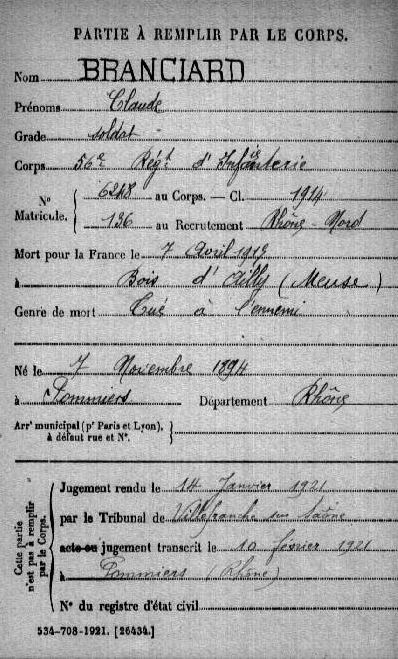 PARTIE À REMPLIR PAR LE CORPS.
Nom BRANCIARD
Prénoms Claude
Grade soldat
Corps 56e Régt d'Infanterie
N° Matricule. { 6248 au Corps. — Cl. 1914
136 au Recrutement Rhône-Nord
Mort pour la France le 7 Avril 1915
à Bois d'Ailly (Meuse)
Genre de mort Tué à l'ennemi
Né le 7 Novembre 1894
à Pommiers Département Rhône
Arrt municipal (pr Paris et Lyon), à défaut rue et N°. }
Cette partie n'est pas à remplir par le Corps.
Jugement rendu le 14 Janvier 1921
par le Tribunal de Villefranche sur Saône
acte ou jugement transcrit le 10 février 1921
à Pommiers (Rhône)
N° du registre d'état civil
534-708-1921. [26434.]